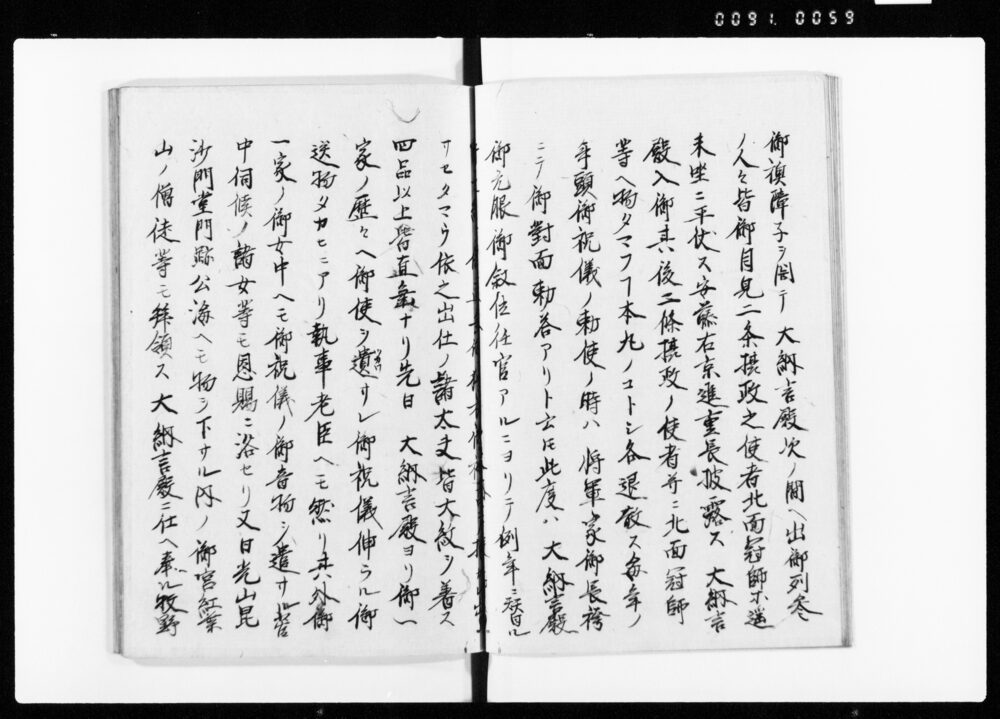 0091.0059
御襖障子ヲ開テ 大納言殿次ノ間ヘ出御列参
ノ人々皆御目見二条摂政之使者北面冠師ホ遥
末坐ニ平伏ス安藤右京進重長披露ス 大納言
殿入御其後二條摂政ノ使者并ニ北面冠師
等ヘ物タマフ事本丸ノコトシ各退散ス毎年ノ
年頭御祝儀ノ勅使ノ時ハ 将軍家御長袴
ニテ御對面勅答アリト云𪜈此度ハ 大納言殿
御元服御叙位任官アルニヨリテ例年ニ
サセタマウ依之出仕ノ諸太夫皆大紋ヲ着ス
四品以上皆直垂ナリ先日 大納言殿ヨリ御一
家ノ歴々ヘ御使ヲ遺サレ御祝儀伸ラル御
送物タカヒニアリ執事老臣ヘモ然リ其外御
一家ノ御女中ヘモ御祝儀ノ御音物ヲ遣サル營
中伺候ノ諸女等モ恩賜ニ浴セリ又日光山毘
沙門堂門跡公海ヘモ物ヲ下サル内ノ御宮紅葉
山ノ僧徒等モ拜領ス 大納言殿ニ仕ヘ奉ル牧野